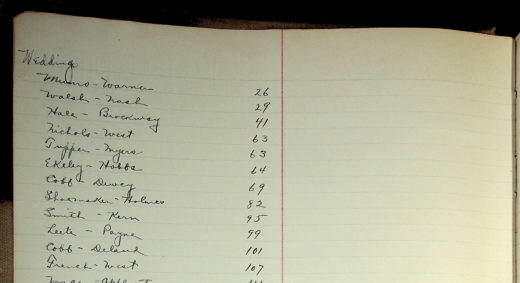 Wedding
Munro - Warner 26
Walsh - Nash 29
Hale - Brockway 41
Nichols - West 63
Tupper - Myers 63
Ekeley - Hobbs 64
Cobb - Dewey 69
Shoemaker - Holmes 82
Smith - Kern 95
Leete - Payne 99
Cobb - Deland 101
French - West 107